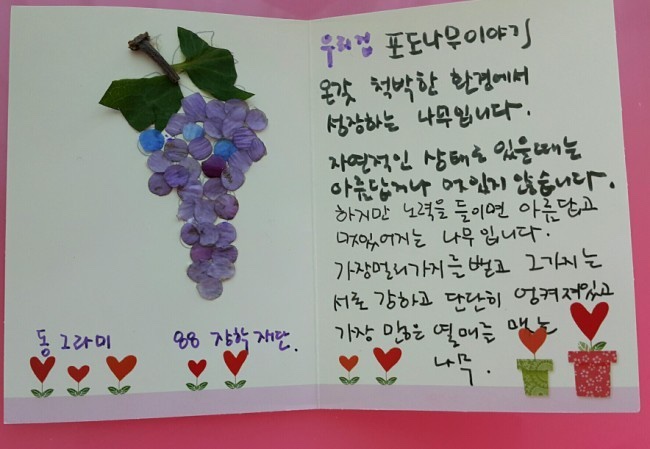 동그라미 88 장학재단.
우리집 포도나무이야기
온갖 척박한 환경에서
성장하는 나무입니다.
자연적인 상태로 있을때는
아름답거나 멋있지 않습니다.
하지만 노력을 들이면 아름답고
멋있어지는 나무입니다.
가장멀리가지를뻗고 그가지는
서로 강하고 단단히 엉켜져있고
가장 많은 열매를 맺는
나무.